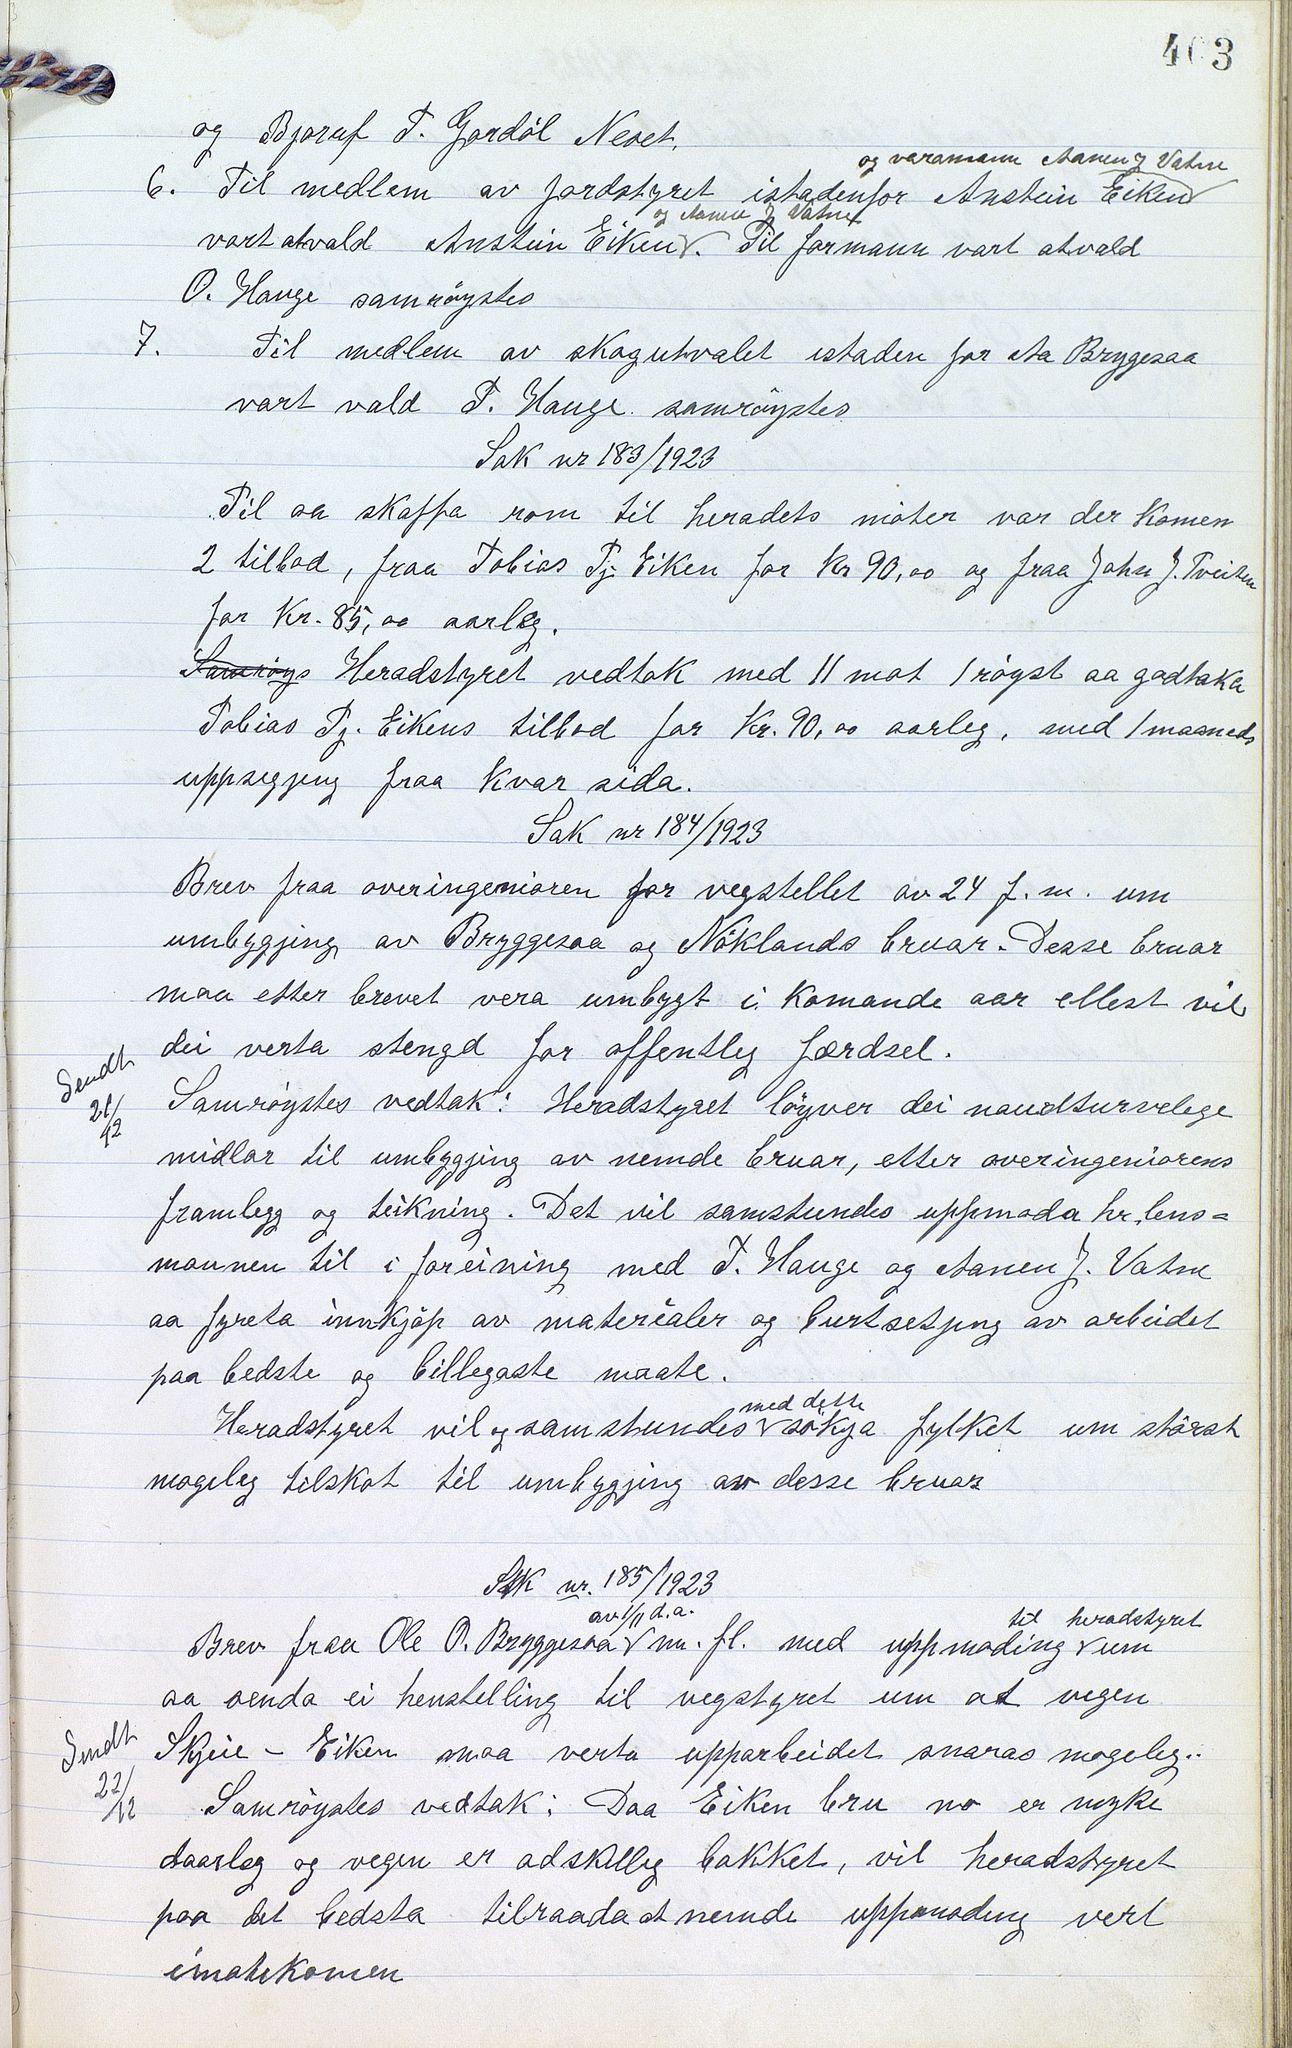 403
og Bjoruf T. Gordöl Nevet.
og varamann Aanen J Vatne
6. Til medlem av jordstyret istadenfor Anstein Eiken
og Aanen J Vatne
vart atvald Anstein Eiken. Til formann vart atvald
O. Hauge samröystes
7. Til medlem av skogutvalet istaden for Aa Brygesaa
vart vald T. Hauge samröystes
Sak nr 183/1923
Til aa skaffa rom til heradets möter var der komen
2 tilbod, fraa Tobias Tj. Eiken for kr 90,00 og fraa John J. Tveiten
for Kr. 85,00 aarleg.
Samröys Heradstyret vedtok med 11 mot 1 röyst aa godtaka
Tobias Tj. Eikens tilbod for Kr. 90,00 aarleg, med 1 maaneds
uppsegjing fraa kvar sida.
Sak nr 184/1923
Brev fraa overingeniøren for vegstellet av 24 f.m. um
umbygjing av Bryggesaa og Nöklands bruar. Desse bruar
maa etter brevet vera umbygt i komande aar ellest vil
dei verta stengd for offentleg færdsel.
Sendt
21/12
Samröystes vedtak: Heradstyret löyver dei naudturvelege
midlar til umbyggjing av nemde bruar, etter overingeniørens
framlegg og teikning. Det vil samstundes uppmoda hr. lens=
mannen til i foreining med T. Hauge og Aanen J. Vatne
aa fyreta innkjöp av materialer og burtsetjing av arbeidet
paa bedste og billegaste maate.
med dette
Heradstyret vil og samstundes sökja fylket um störst
mogeleg tilskot til umbyggjing av desse bruar
Sak nr. 185/1923
av 1/11 d.a. til heradstyret
Brev fraa Ole O. Bryggesaa m. fl. med uppmoding um
aa senda ei henstelling til vegstyret um at vegen
Sendt
22/12
Skjeie - Eiken maa verta upparbeidet snaras mogeleg..
Samröystes vedtak: Daa Eiken bru no er myke
daarleg og vegen er adskilleg bakket, vil heradstyret
paa det bedsta tilraada at nemde uppmoding vert
imøtekomen